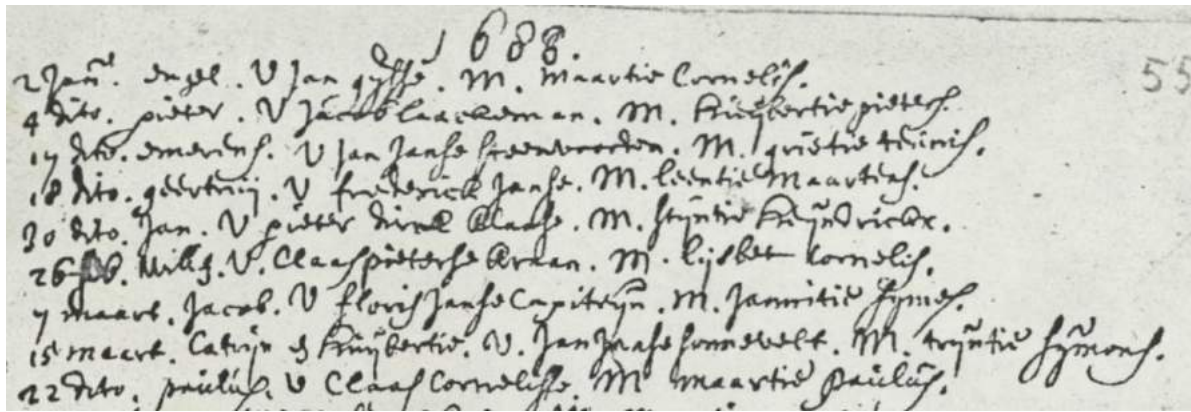 1688.
55
2 Jan. engel. V Jan gysse. M. Maartie Cornelis.
4 dito. pieter. V Jacob laackeman. M. Huijbertie pieters.
17 dito. emerens. V Jan Janse steenvoorden. M. grietie teunis.
18 dito. geertruij. V frederick Janse. M. leentie Maartens.
30 dito. Jan. V pieter dirck Klaase. M. stijntie Heijndrickx.
26 feb. Willem. V. Claas pieterse Kraan. M. lijsbet Cornelis.
7 maart. Jacob. V floris Janse Capiteijn. M. Jannitie Sijmes.
15 maart. Catrijn en Huijbertie. V. Jan Janse sonnevelt. M. trijntie Sijmons.
22 dito. paulus. V Claas Cornelisse. M maartie paulus.